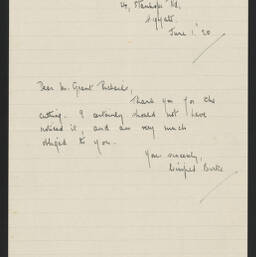 24, Stanhope Rd.
Highgate.
June 1. '20
Dear Mr. Grant Richards,
Thank you for the
cutting. I certainly should not have
noticed it, and am very much
obliged to you.
Yours sincerely,
Winifred Burke